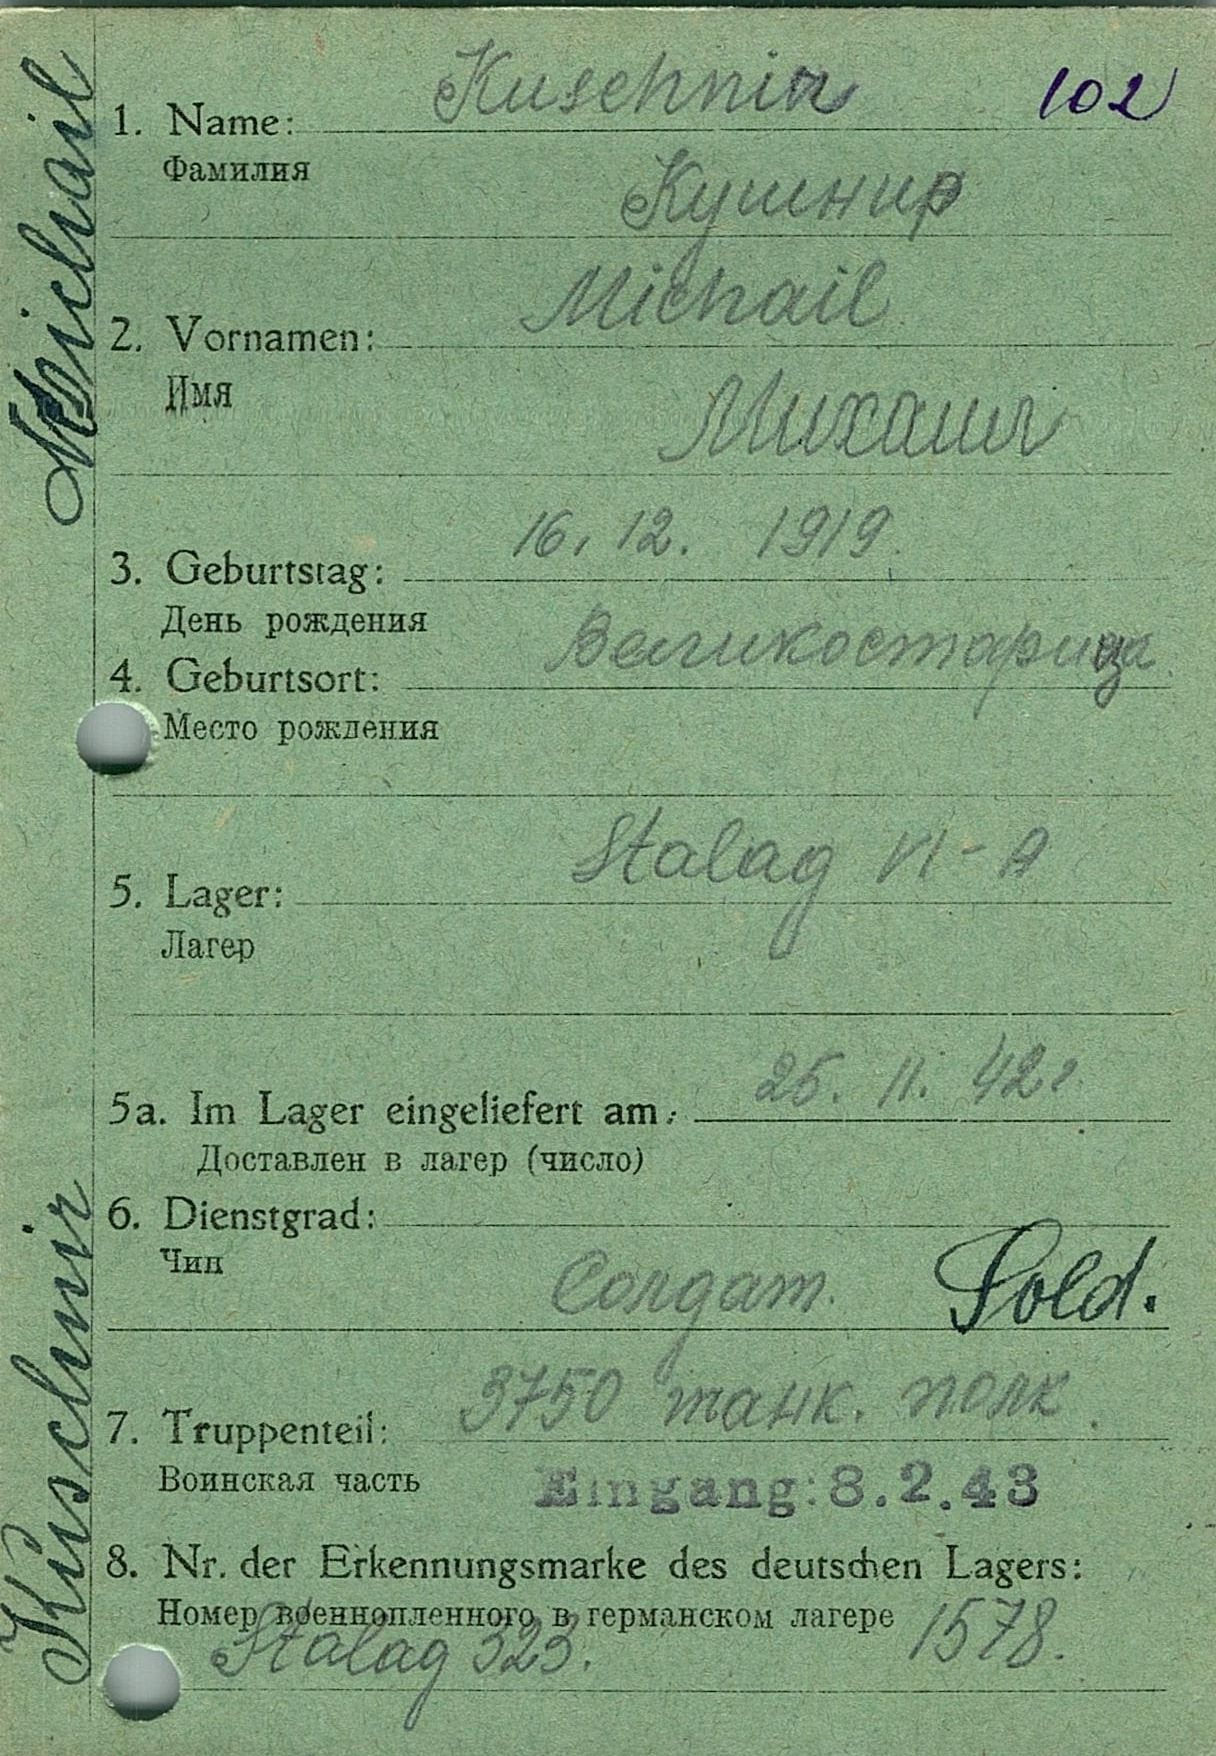 Kuschnir
102
1. Name:
Фамилия
Кушнир
Michail
2. Vornamen:
Имя
Михаил
16. 12. 1919
3. Geburtstag:
День рождения
Великостарица
4. Geburtsort:
Место рождения
Stalag VI-A
5. Lager:
Лагер
25. 11. 42г
5a. Im Lager eingeliefert am:
Доставлен в лагер (число)
6. Dienstgrad:
Чин
Солдат. Sold.
3750 танк. полк.
7. Truppenteil:
Воинская часть
Eingang: 8.2.43
8. Nr. der Erkennungsmarke des deutschen Lagers:
Номер военнопленного в германском лагере
Stalag 323. 1578.
Kuschnir Michail